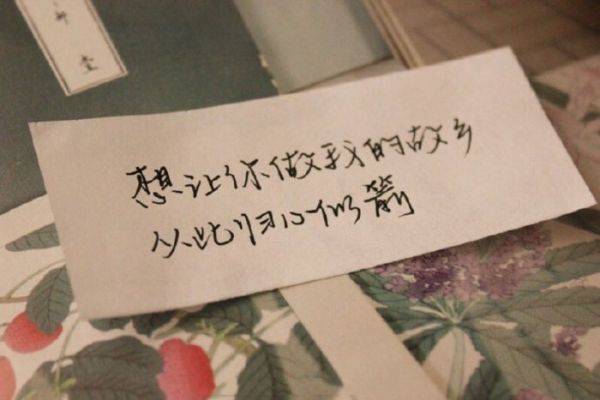 想让你做我的故乡
从此归心似箭